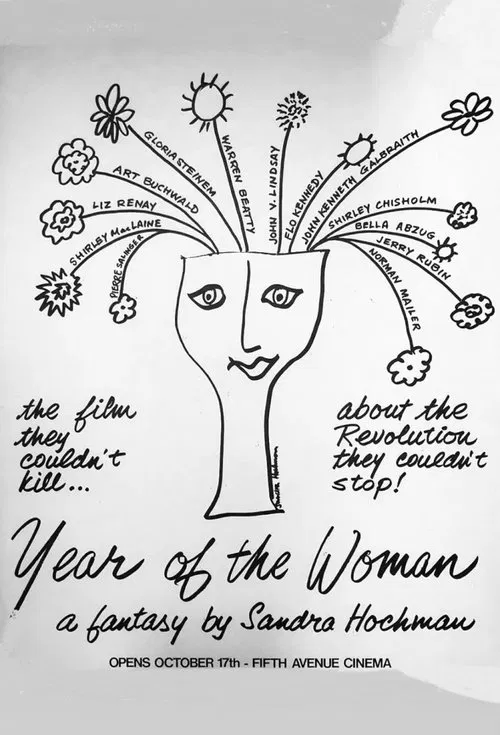 GLORIA STEINEM
WARREN BEATTY
JOHN V. LINDSAY
FLO KENNEDY
JOHN KENNETH GALBRAITH
ART BUCHWALD
SHIRLEY CHISHOLM
LIZ RENAY
BELLA ABZUG
SHIRLEY MacLAINE
JERRY RUBIN
PIERRE SALINGER
NORMAN MAILER
the film
they
couldn't
kill...
about the
Revolution
they couldn't
stop!
Sandra Hochman
Year of the Woman
a fantasy by Sandra Hochman
OPENS OCTOBER 17th - FIFTH AVENUE CINEMA